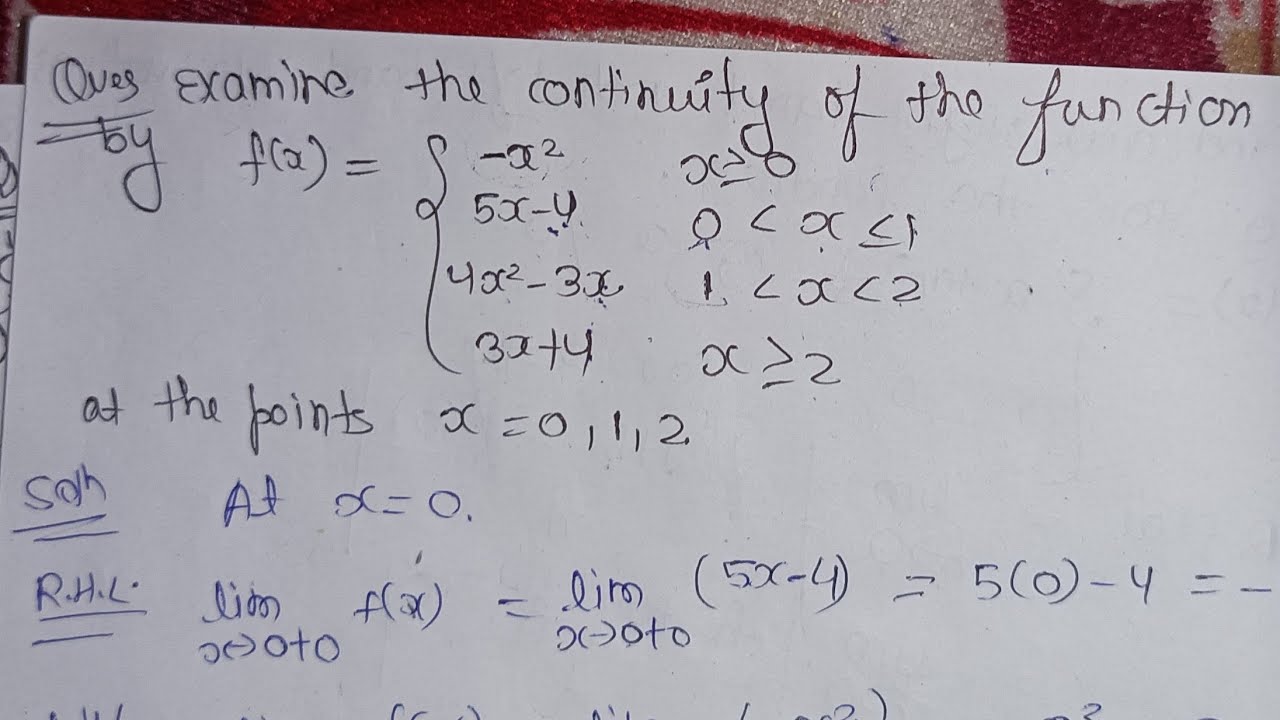 Ques Examine the continuity of the function
by f(x) = { -x² x≥0
5x-4 0 < x ≤1
4x²-3x 1 < x < 2
3x+4 x ≥ 2
at the points x = 0, 1, 2
Soln At x = 0.
R.H.L. lim x→0+0 f(x) = lim x→0+0 (5x-4) = 5(0)-4 = -